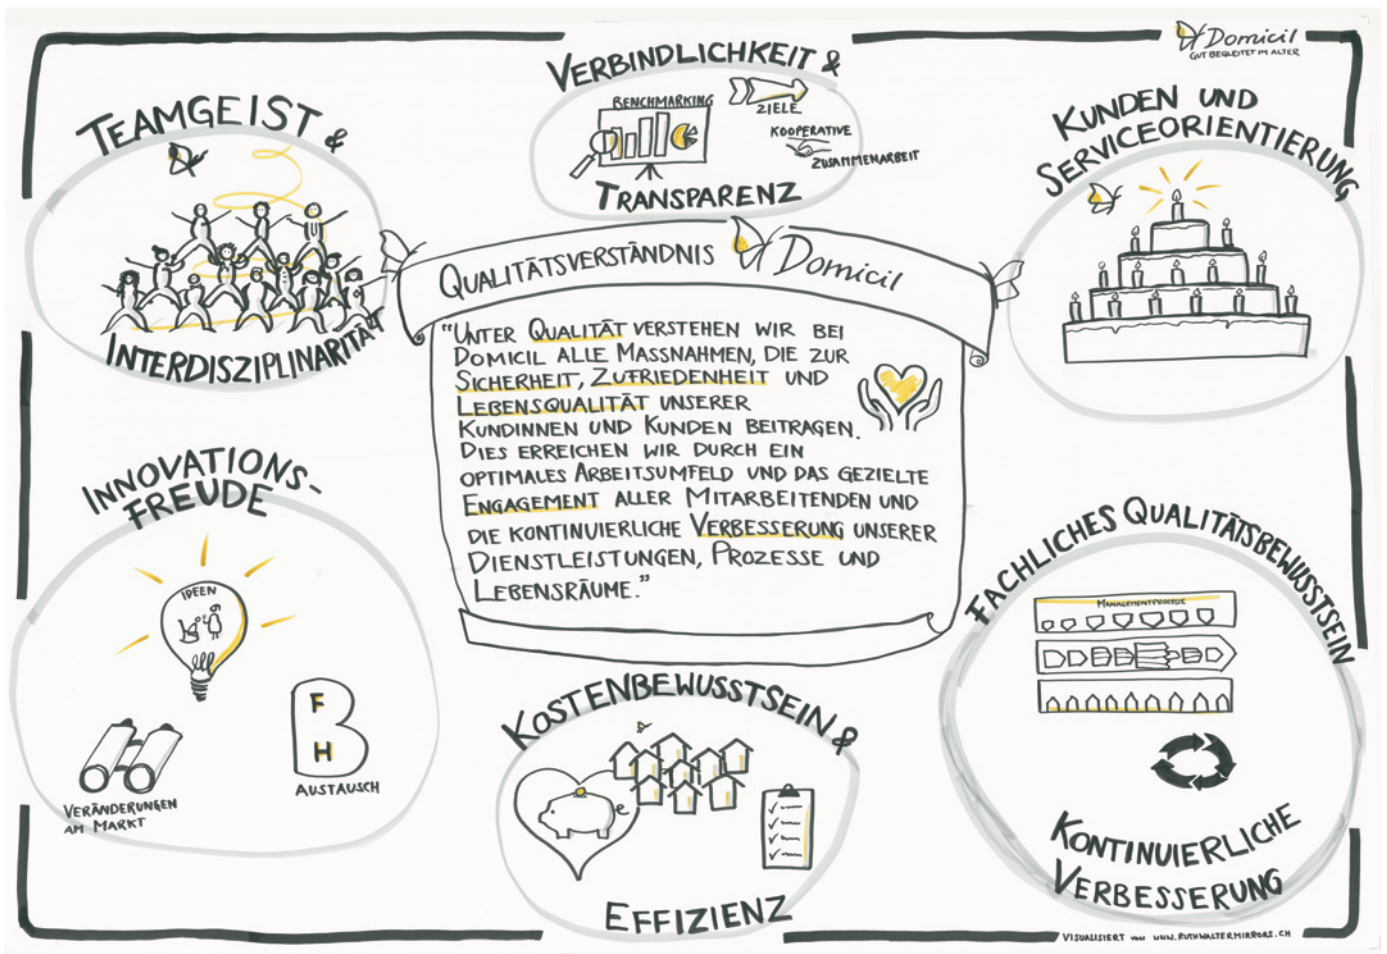 Domicil
GUT BEGLEITET IM ALTER
TEAMGEIST &
INTERDISZIPLINARITÄT
VERBINDLICHKEIT &
BENCHMARKING
ZIELE
KOOPERATIVE
ZUSAMMENARBEIT
TRANSPARENZ
KUNDEN UND
SERVICEORIENTIERUNG
QUALITÄTSVERSTÄNDNIS Domicil
"UNTER QUALITÄT VERSTEHEN WIR BEI
DOMICIL ALLE MASSNAHMEN, DIE ZUR
SICHERHEIT, ZUFRIEDENHEIT UND
LEBENSQUALITÄT UNSERER
KUNDINNEN UND KUNDEN BEITRAGEN.
DIES ERREICHEN WIR DURCH EIN
OPTIMALES ARBEITSUMFELD UND DAS GEZIELTE
ENGAGEMENT ALLER MITARBEITENDEN UND
DIE KONTINUIERLICHE VERBESSERUNG UNSERER
DIENSTLEISTUNGEN, PROZESSE UND
LEBENSRÄUME."
INNOVATIONS-
FREUDE
IDEEN
B
F
H
AUSTAUSCH
VERÄNDERUNGEN
AM MARKT
KOSTENBEWUSSTSEIN &
EFFIZIENZ
FACHLICHES QUALITÄTSBEWUSSTSEIN
MANAGEMENTPROZESSE
KONTINUIERLICHE
VERBESSERUNG
VISUALISIERT VON WWW.RUTHWALTERMIRRORS.CH